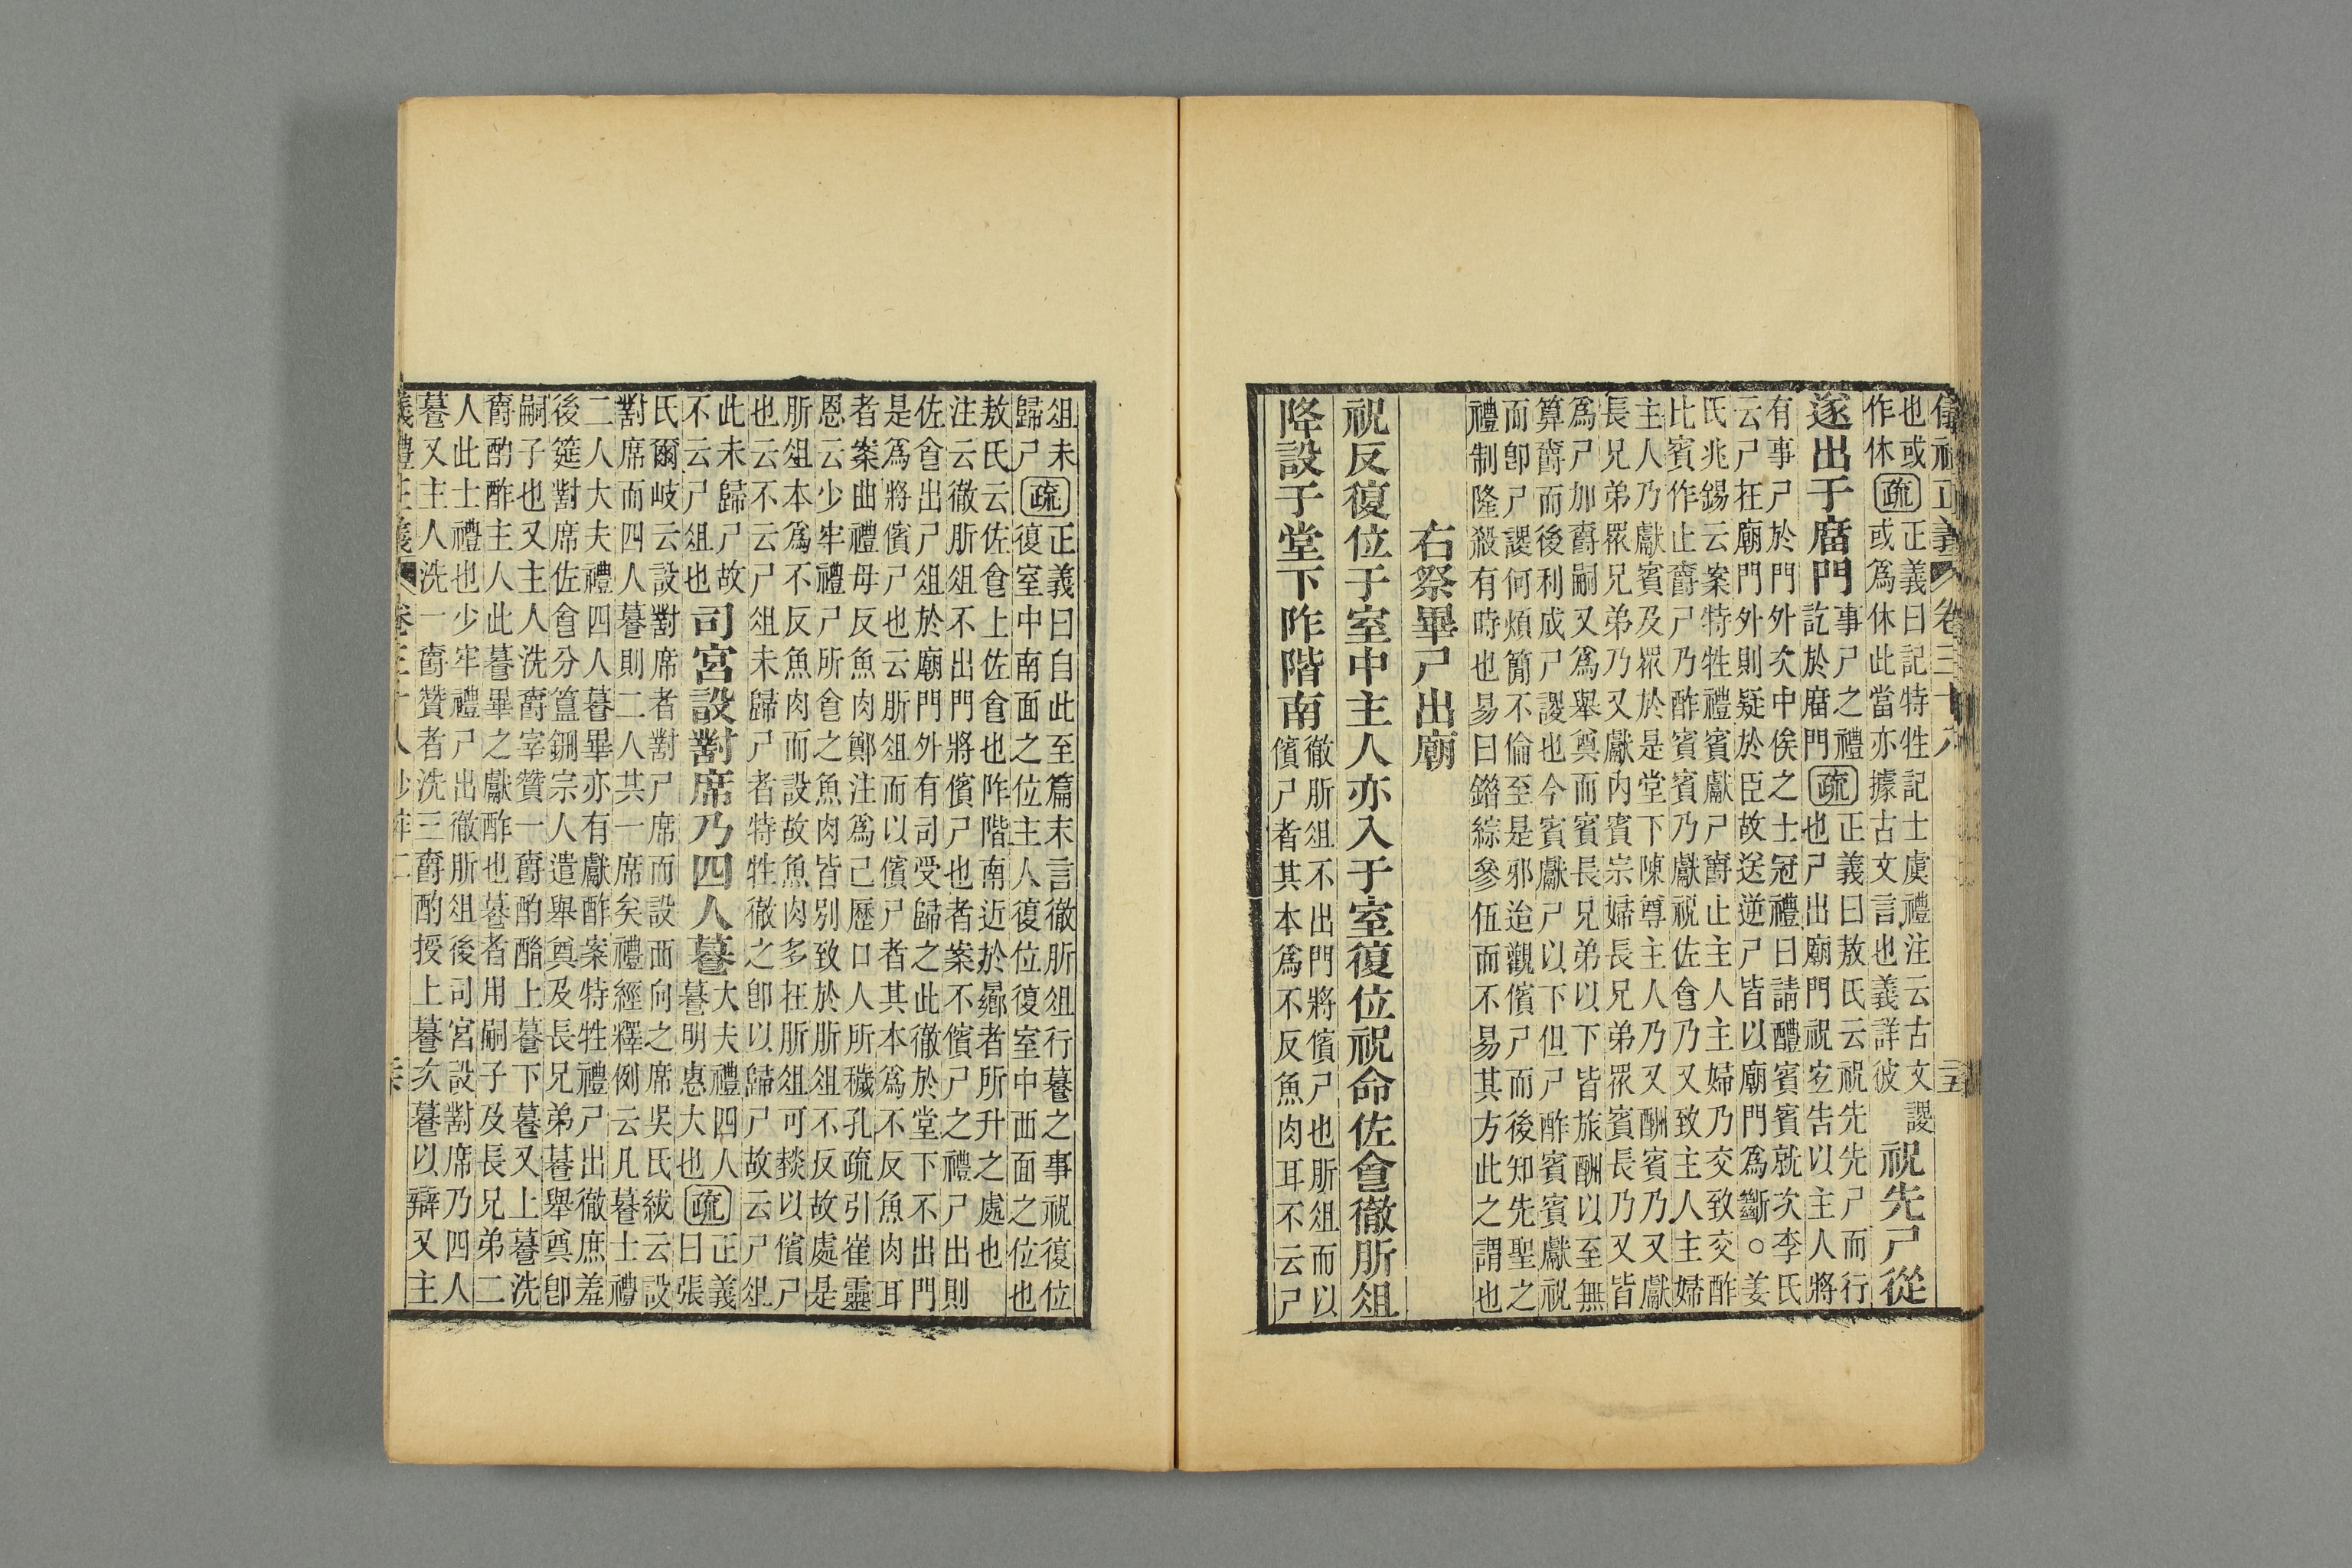 儀禮正義 卷三十八 三五
也或
作休
疏
正義曰記特牲記士虞禮注云古文謖
或爲休此當亦據古文言也義詳彼
祝先尸從
遂出于廟門
事尸之禮
訖於廟門
疏
正義曰敖氏云祝先先尸而行
也尸出廟門祝宜告以主人將
有事尸於門外次中俟之士冠禮曰請醴賓賓就次李氏
云尸在廟門外則疑於臣故送逆尸皆以廟門爲斷○姜
氏兆錫云案特牲禮賓獻尸爵止主人主婦乃交致交酢
比賓作止爵尸乃酢賓賓乃獻祝佐食乃又致主人主婦
主人乃獻賓及眾於是堂下陳尊主人乃又酬賓乃又獻
長兄弟眾兄弟乃又獻內賓宗婦長兄弟眾賓長乃又皆
爲尸加爵嗣又爲舉奠而賓長兄弟以下皆旅酬以至無
算爵而後利成尸謖也今賓獻尸以下但尸酢賓賓獻祝
而卽尸謖何煩簡不倫至是邪迨觀儐尸而後知先聖之
禮制隆殺有時也易曰錯綜參伍而不易其方此之謂也
右祭畢尸出廟
祝反復位于室中主人亦入于室復位祝命佐食徹肵俎
降設于堂下阼階南
徹肵俎不出門將儐尸也肵俎而以
儐尸者其本爲不反魚肉耳不云尸
俎未
歸尸
疏
正義曰自此至篇末言徹肵俎行䭈之事祝復位
復室中南面之位主人復位復室中西面之位也
敖氏云佐食上佐食也阼階南近於曏者所升之處也
注云徹肵俎不出門將儐尸也者案不儐尸之禮尸出則
佐食出尸俎於廟門外有司受歸之此徹於堂下不出門
是爲將儐尸也云肵俎而以儐尸者其本爲不反魚肉耳
者案曲禮毋反魚肉鄭注爲己歷口人所穢孔疏引崔靈
恩云少牢禮尸所食之魚肉皆別致於肵俎不反故處是
肵俎本爲不反魚肉而設故魚肉多在肵俎可餤以儐尸
也云不云尸俎未歸尸者特牲徹之卽以歸尸故云尸俎
此未歸尸故
不云尸俎也
司宮設對席乃四人䭈
大夫禮四人
䭈明惠大也
疏
正義
曰張
氏爾岐云設對席者對尸席而設西向之席吳氏紱云設
對席而四人䭈則二人其一席矣禮經釋例云凡䭈士禮
二人大夫禮四人䭈畢亦有獻酢案特牲禮尸出徹庶羞
後筵對席佐食分簋鉶宗人遣舉奠及長兄弟䭈舉奠卽
嗣子也又主人洗爵宰贊一爵酌酳上䭈下䭈又上䭈洗
爵酌酢主人此䭈畢之獻酢也䭈者用嗣子及長兄弟二
人此士禮也少牢禮尸出徹肵俎後司宮設對席乃四人
䭈又主人洗一爵贊者洗三爵酌授上䭈次䭈以辯又主